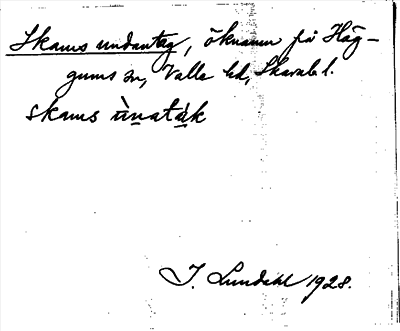 Skams undantag, öknamn på Häg-
gums sn, Valle hd, Skarab. l.
skams ùnatàk
I. Lundahl 1928.